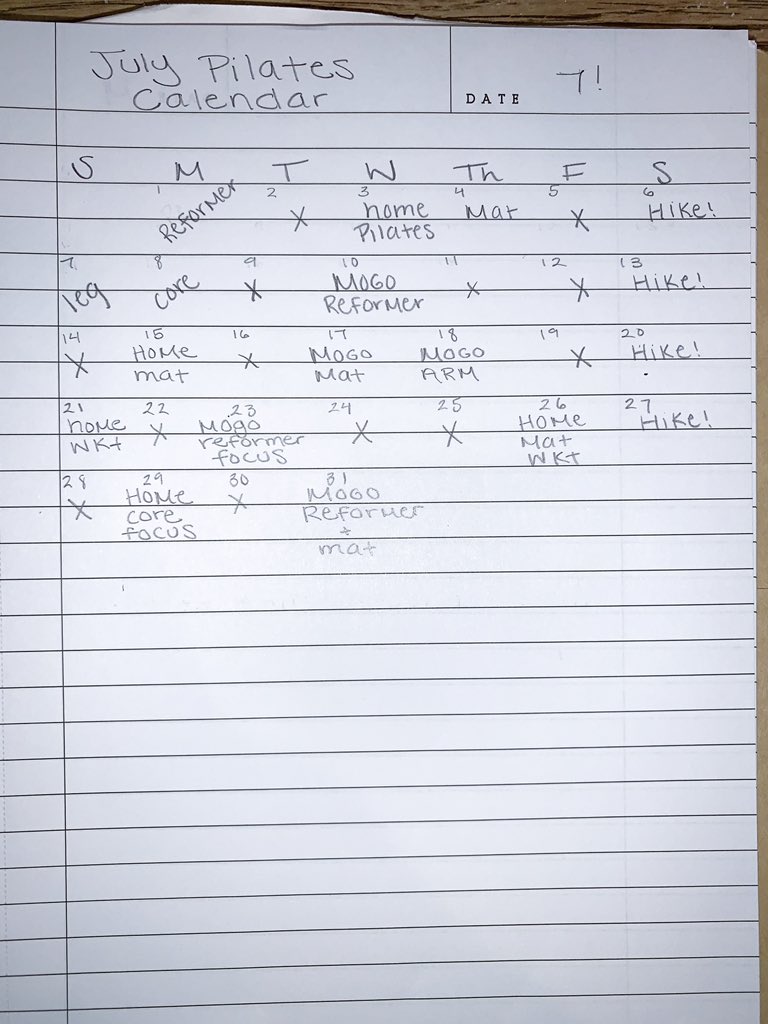 July Pilates
Calendar
DATE 7!
S M T W Th F S
1 2 3 4 5 6
Reformer X home Mat X Hike!
Pilates
7 8 9 10 11 12 13
leg core X MOGO X X Hike!
Reformer
14 15 16 17 18 19 20
X Home X MOGO MOGO X Hike!
mat Mat ARM
21 22 23 24 25 26 27
home X Mogo X X Home Hike!
WKt reformer Mat
focus WKt
28 29 30 31
X Home X MOGO
core Reformer
focus +
mat